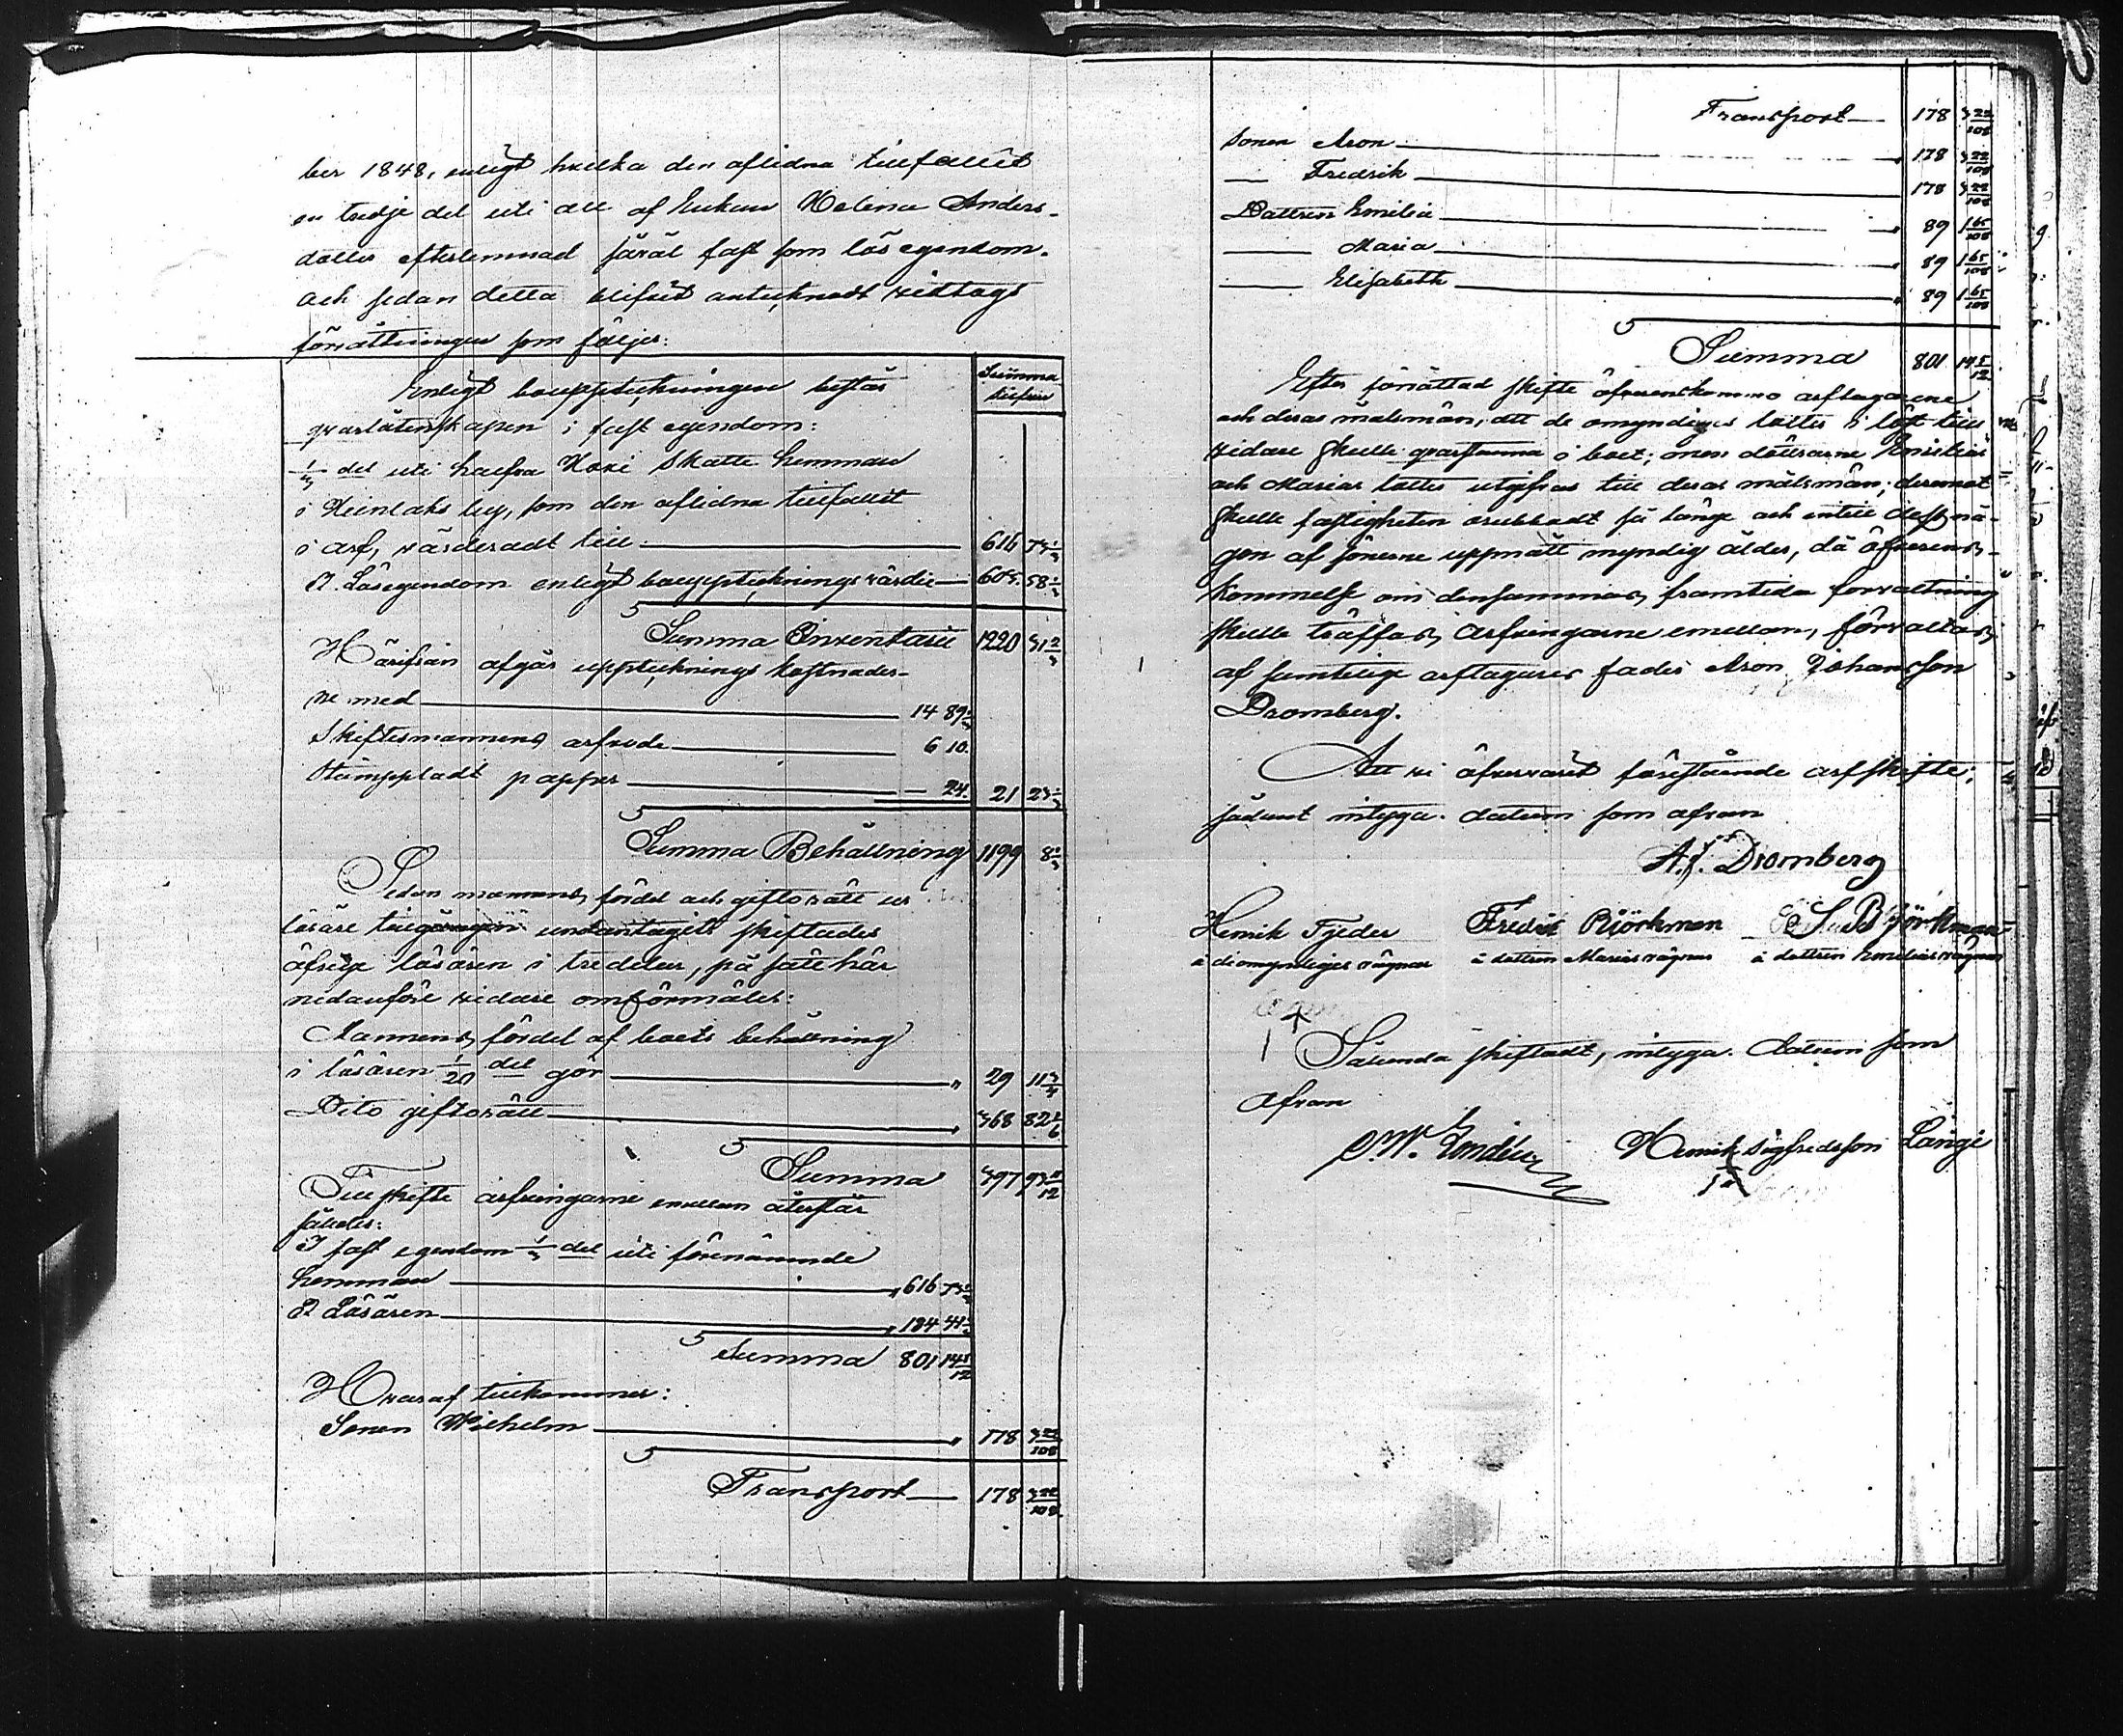 ber 1848, enligt hvilka den aflidna tillfallit
en tredje del uti all af Enkan Helena Anders-
dotter efterlemnad såväl fast som lös egendom.
och sedan detta blifvit antecknadt vidtogs
förrättningen som följer:
Summa
Silfver
Enligt bouppteckningen består
qvarlåtenskapen i fast egendom:
1/3 del uti halfva Hoxi Skatte hemman
i Heinlaks by, som den aflidna tillfallit
i arf, värderadt till 616 73 1/3
D:o Lösegendom enligt bouppteckningsvärdie 603 58 1/3
Summa Inventarii 1220 31 2/3
Härifrån afgår uppteckningskostnader-
ne med 14 89 1/3
Skiftesmannens arfvode 6 10.
Stämpladt papper — 24. 21 23 1/3
Summa Behållning 1199 8 1/3
Sedan mannens fördel och giftorätt ur
lösöre tillgången undantagits skiftades
öfrige lösören i tredelar, på sätt här
nedanföre vidare omförmäles:
Mannens fördel af boets behållning
i lösören 1/20 del gör " 29 11 3/4
Dito giftorätt " 368 82 1/6
Summa 397 93 11/12
Till skifte arfvingarne emellan återstår
således:
I fast egendom 1/3 del uti förenämnde
hemman " 616 73 1/3
D:o Lösören " 184 41 1/12
Summa 801 14 5/12
Hvaraf tillkommer:
Sonen Wilhelm " 178 3 22/108
Transport 178 3 22/108
Transport 178 3 22/108
Sonen Aron " 178 3 22/108
— Fredrik 178 3 22/108
Dottren Emilia " 89 1 65/108
— Maria " 89 1 65/108
— Elisabeth " 89 1 65/108
Summa 801 14 5/12
Efter förrättad skifte öfverenskommo arftagarene
och deras målsmän, att de omyndiges lotter i löst till
vidare skulle qvarstanna i boet; men döttrarne Emilias
och Marias lotter utgifvas till deras målsmän; deremot
skulle fastigheten orubbadt så länge och intill dess nå-
gon af sönerne uppnått myndig ålder, då öfverens-
kommelse om densammas framtida förvaltning
skulle träffas arfvingarne emellan, förvaltas
af samtelige arftagares fader Aron Johansson
Dromberg.
Att vi öfvervarit förestående arfskifte;
sådant intyga. datum som ofvan
A. J. Dromberg
Henrik Tjeder Fredric Björkman S. Björkman
å de omyndiges vägnar å dottren Marias vägnar å dottren Emilias vägnar
Sålunda skiftadt, intyga. Datum som
ofvan
Henrik Sigfredsson Långi